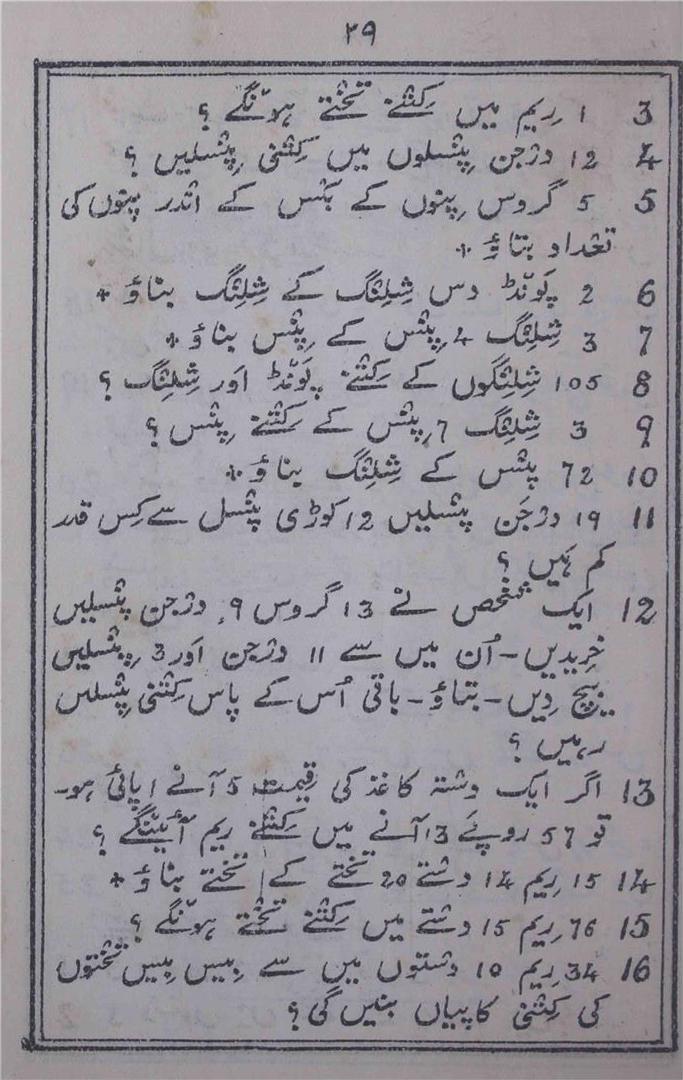 ۲۹
3 ۱ ریم میں کتنے تختے ہونگے ؟
4 12 درجن پنسلوں میں کتنی پنسلیں ؟
5 5 گروس پنوں کے بکس کے اندر پنوں کی
تعداد بتاؤ +
6 2 پونڈ دس شلنگ کے شلنگ بناؤ +
7 3 شلنگ 4 پنس کے پنس بناؤ +
8 105 شلنگوں کے کتنے پونڈ اور شلنگ ؟
9 3 شلنگ 7 پنس کے کتنے پنس ؟
10 72 پنس کے شلنگ بناؤ +
11 19 درجن پنسلیں 12 کوڑی پنسل سے کس قدر
کم ہیں ؟
12 ایک شخص نے 13 گروس 9 درجن پنسلیں
خریدیں - اُن میں سے 11 درجن اور 3 پنسلیں
بیچ دیں - بتاؤ - باقی اُس کے پاس کتنی پنسلیں
رہیں ؟
13 اگر ایک دستہ کاغذ کی قیمت 5 آنے 1 پائی ہو -
تو 57 روپئے 13 آنے میں کتنے ریم آئینگے ؟
14 15 ریم 14 دستے 20 تختے کے تختے بتاؤ +
15 76 ریم 15 دستے میں کتنے تختے ہونگے ؟
16 34 ریم 10 دستوں میں سے بیس بیس تختوں
کی کتنی کاپیاں بنیں گی ؟